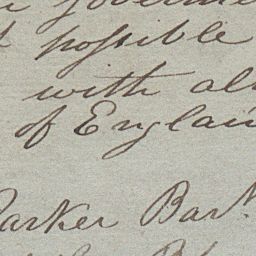 possible
with al
of Englan
Parker Bart